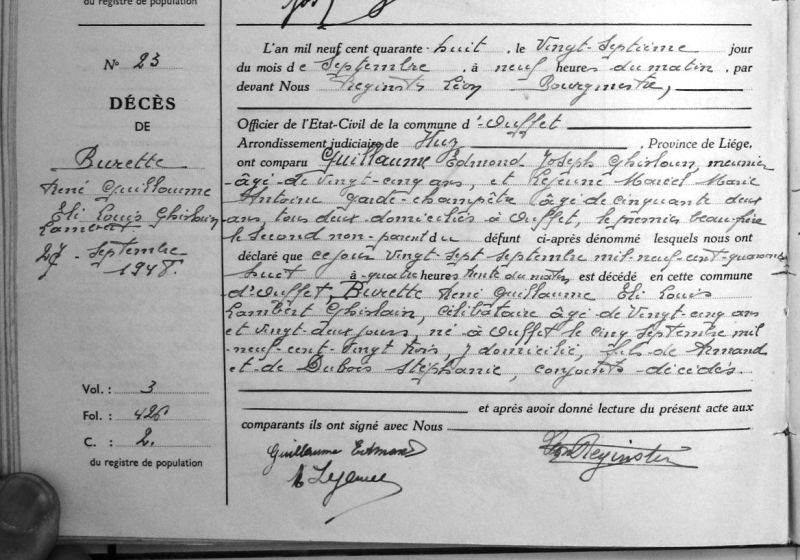 du registre de population
L'an mil neuf cent quarante-huit, le Vingt-Septième jour
du mois de Septembre, à neuf heures du matin, par
devant Nous Reginster Léon Bourgmestre,
Officier de l'Etat-Civil de la commune d'Ouffet
Arrondissement judiciaire de Huy, Province de Liége,
ont comparu Guillaume Edmond Joseph Ghislain, meunier
âgé de Vingt-cinq ans, et Lejeune Marcel Marie
Antoine garde-champêtre âgé de cinquante deux
ans, tous deux domiciliés à Ouffet, le premier beau-frère
le Second non-parent du défunt ci-après dénommé lesquels nous ont
déclaré que ce jour Vingt-sept septembre mil-neuf-cent-quarante
huit à quatre heures trente du matin, est décédé en cette commune
d'Ouffet, Burette René Guillaume Eli Louis
Lambert Ghislain, célibataire âgé de Vingt-cinq ans
et vingt-deux jours, né à Ouffet le cinq Septembre mil
neuf-cent-vingt trois, y domicilié, fils de Armand
et de Dubois Stéphanie, conjoints-décédés
et après avoir donné lecture du présent acte aux
comparants ils ont signé avec Nous
Guillaume Edmond
M Lejeune
Reginster
N° 23
DÉCÈS
DE
Burette
René Guillaume
Eli Louis Ghislain
Lambert
27 - Septembre
1948.
Vol. : 3
Fol. : 426
C. : 2.
du registre de population